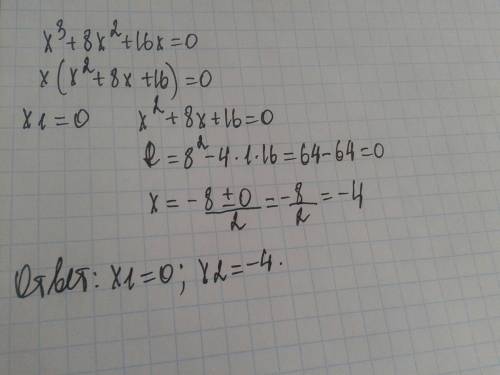 x³+8x²+16x=0
x(x²+8x+16)=0
x1=0 x²+8x+16=0
D=8²-4·1·16=64-64=0
x=-8±0/2=-8/2=-4
Ответ: x1=0; x2=-4.